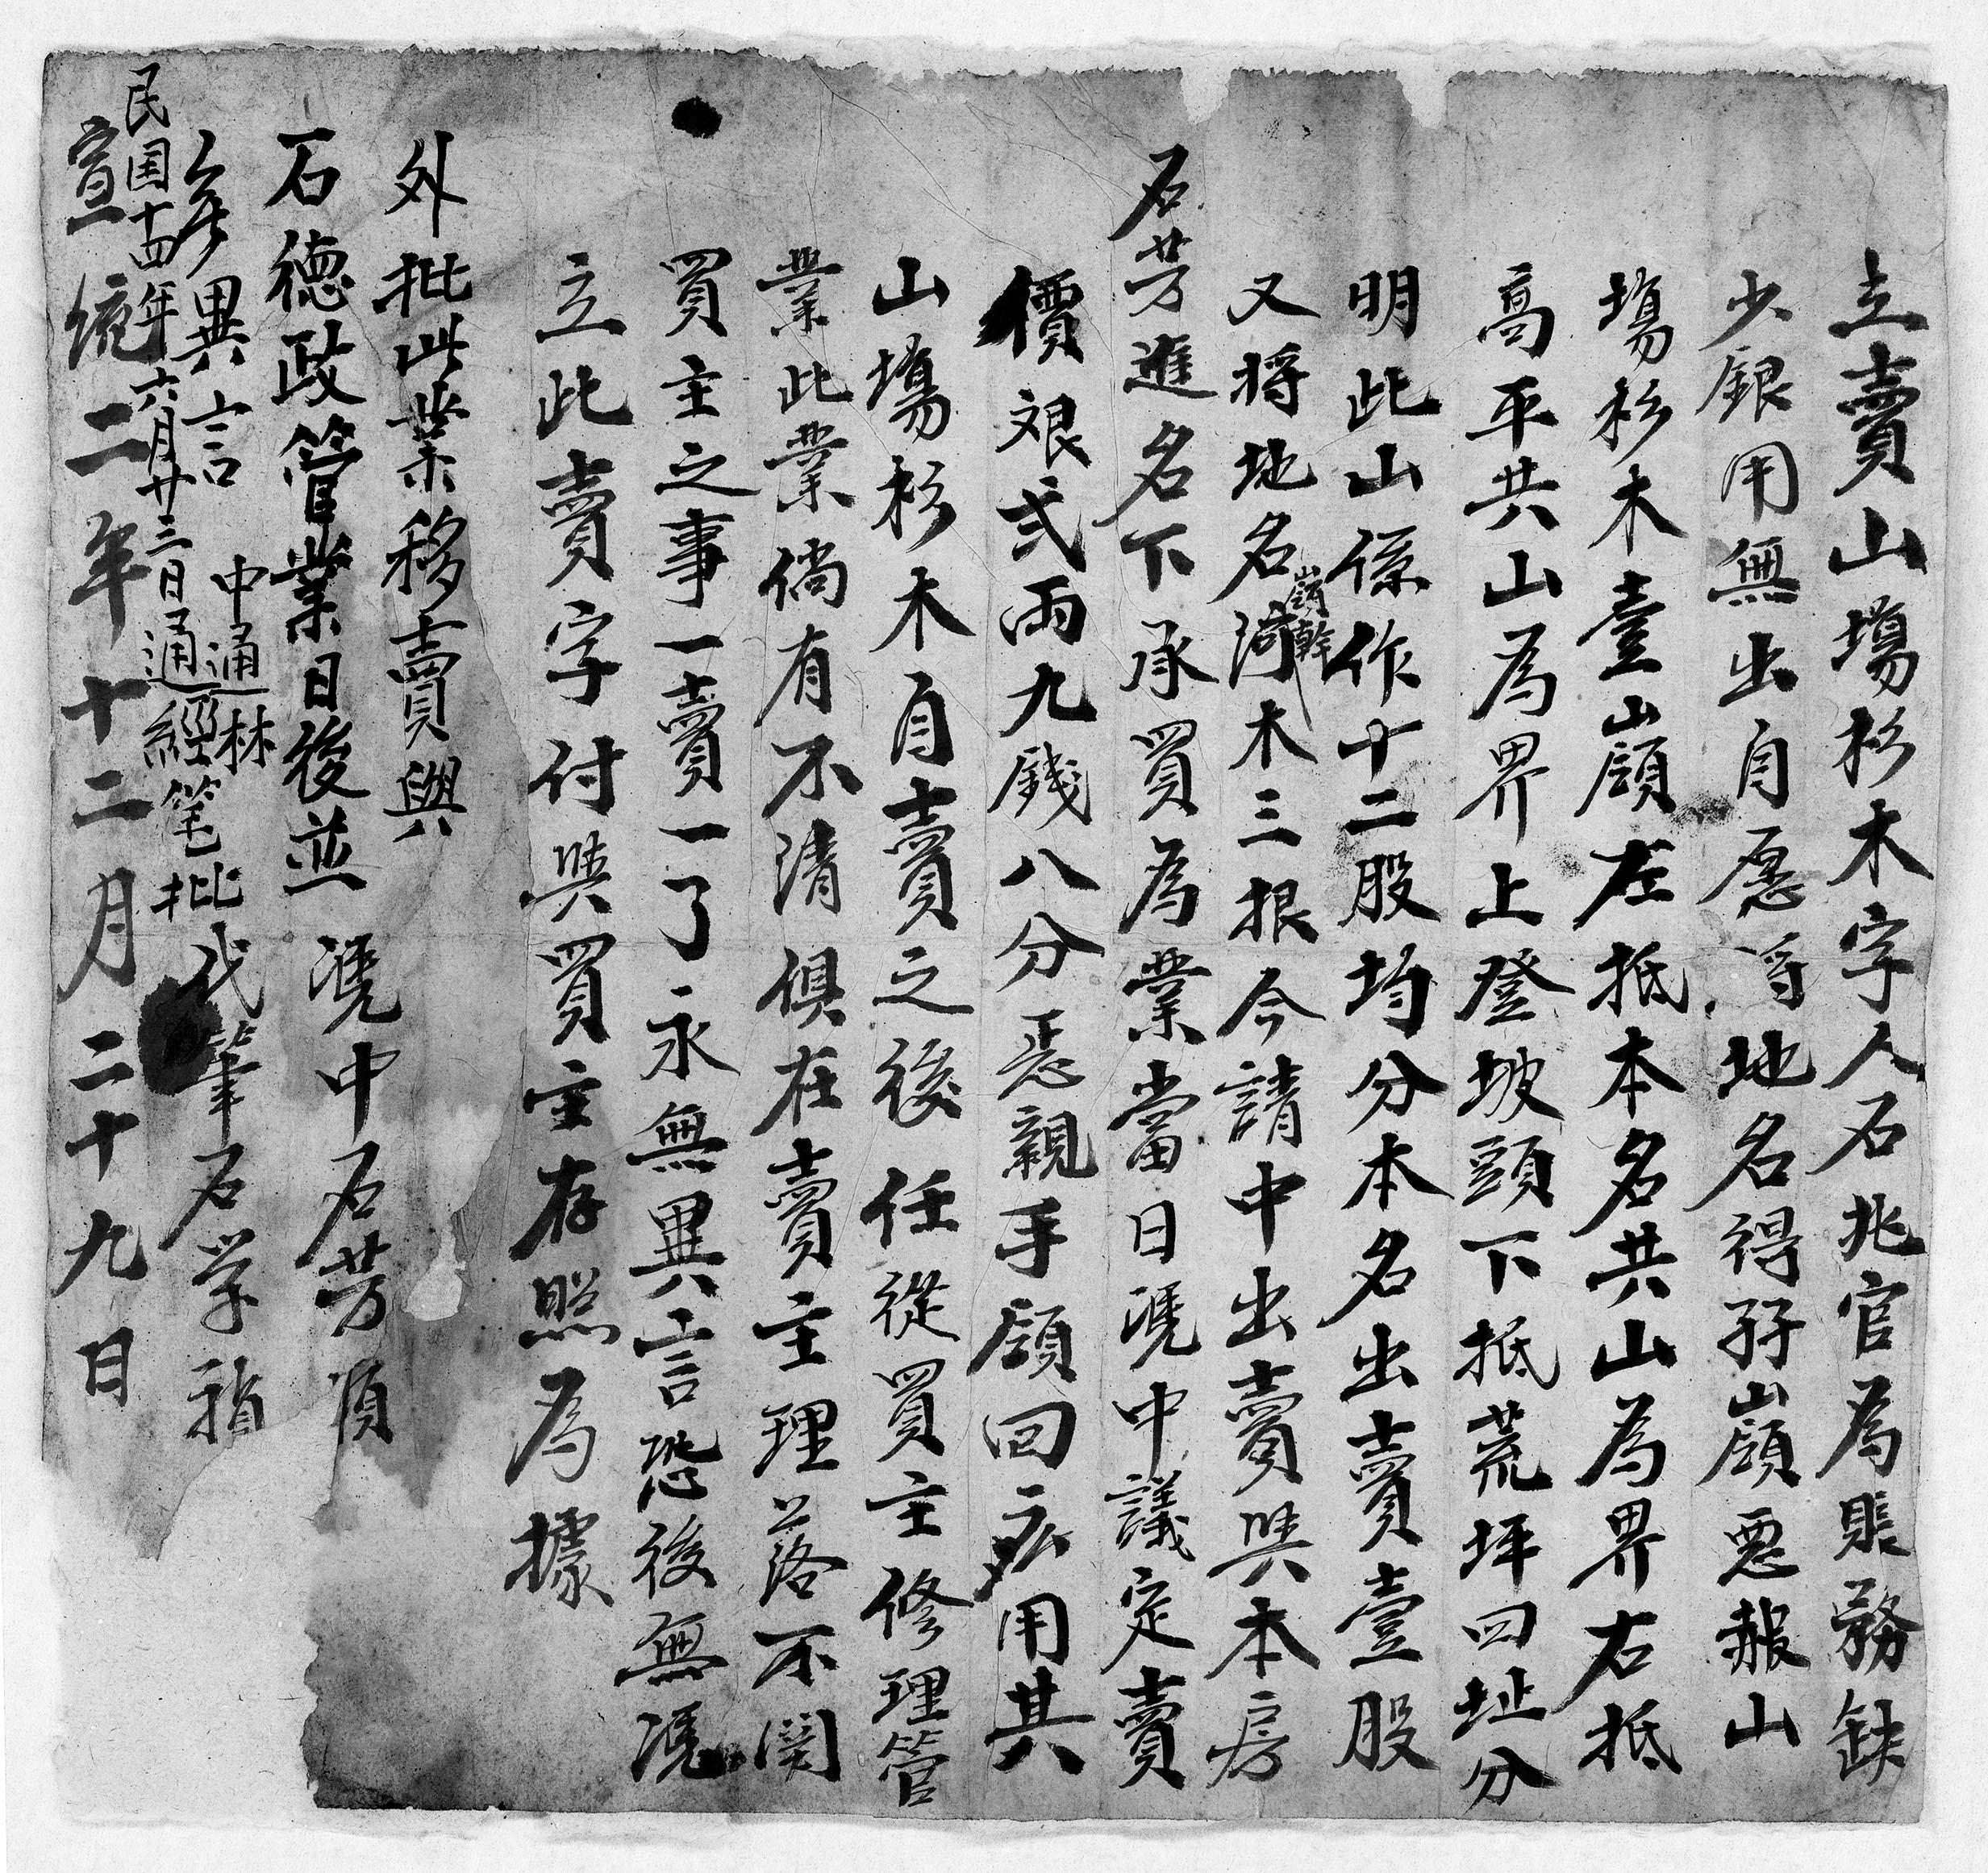 立賣山塲杉木字人石兆官為賬務缺
少銀用無出自愿将地名得孖嶺惡赧山
塲杉木壹嶺左抵本名共山為界右抵
高平共山為界上登坡頭下抵荒坪四址分
明此山係作十二股均分本名出賣壹股
又将地名嶺幹木三根今請中出賣與本房
石芳進名下承買為業當日凴中議定賣
價艰弍両九錢八分恶親手領回応用其
山塲杉木自賣之後任從買主修理管
業此業倘有不清俱在賣主理落不関
買主之事一賣一了永無異言恐後無凴
立此賣字付與買主存照為據
外批此業移賣與
石德政管業日後並
無異言 中通林
凴中石芳順
代筆石学
民国十四年六月廿三日通經笔批
宣統二年十二月二十九日